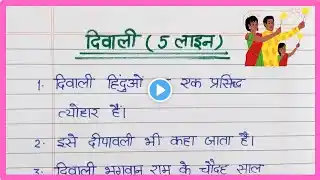 दिवाली ( 5 लाइन )
1. दिवाली हिंदुओं एक प्रसिद्ध
त्योहार है।
2. इसे दीपावली भी कहा जाता है।
3. दिवाली भगवान राम के चौदह साल